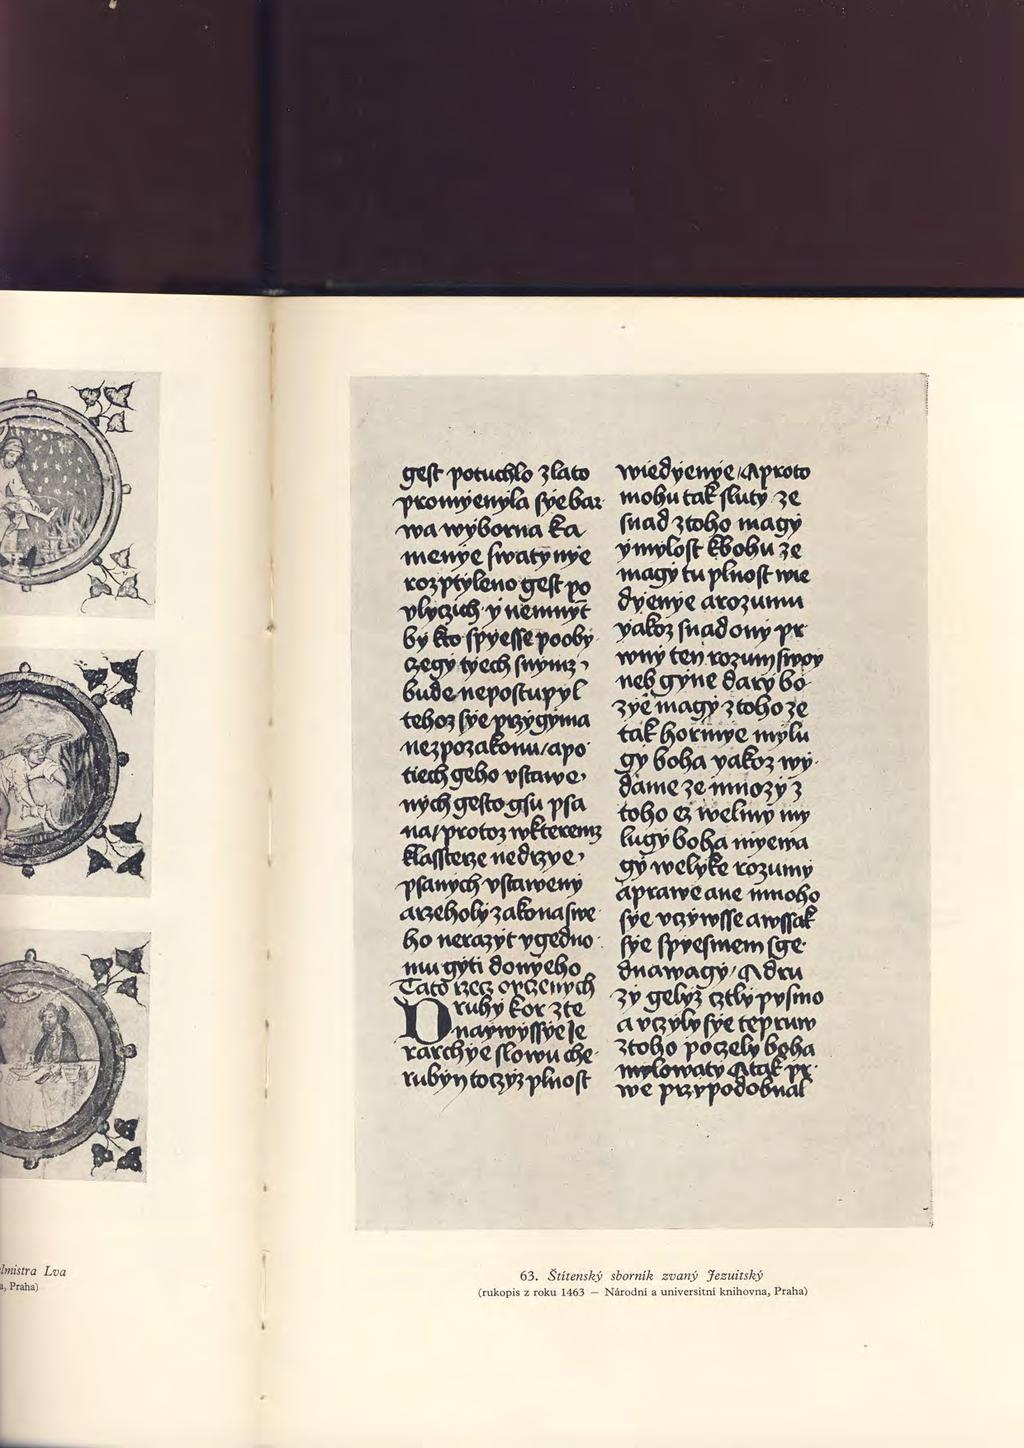 lmistra Lva
a, Praha)
gest potuchlo zlato
promyenyla sye bar
wa wyborna ka
menye swatynye
rozptyleno gest po
vlyczich y nemnyt
by kto spyesse pooby
czegy tyech snymz
bude nepostupyl
tehoz sye przygyma
nez po zakonu / a po
tiech geho vstawe
nych gesto gsu psa
na / protoz w kteremz
klassterze nedrzye
psanych vstaweny
a rzeholy zakona swe
ho nerazyt v gedno
mu gyti do nyeho
Tato rzecz o
Druhy kor z te
naywyssye Ie
rarchye slowu che
rubyn toczyz plnost
wiedyenye / A proto
mohu tak sluty ze
snad z toho magy
y mylost k bohu ze
magy tu plnost wie
dyenye a rozumu
yakoz snad ony pr
wny ten rozum swoy
neb gyne dary bo
zye magy z toho ze
tak hornye mylu
gy boha yakoz wy
dame ze mnozy z
toho ez welmy my
lugy boha nyema
gy welyke rozumy
a prawe ane mnoho
sye vczywsse a wssak
sye spyesmem sge
dnawagy / A dru
zy gelyz cztly pysmo
a vczyly sye tepruw
z toho poczely boha
mylowaty A tak pr
we przypodobnal
63. Štítenský sborník zvaný Jezuitský
(rukopis z roku 1463 — Národní a universitní knihovna, Praha)